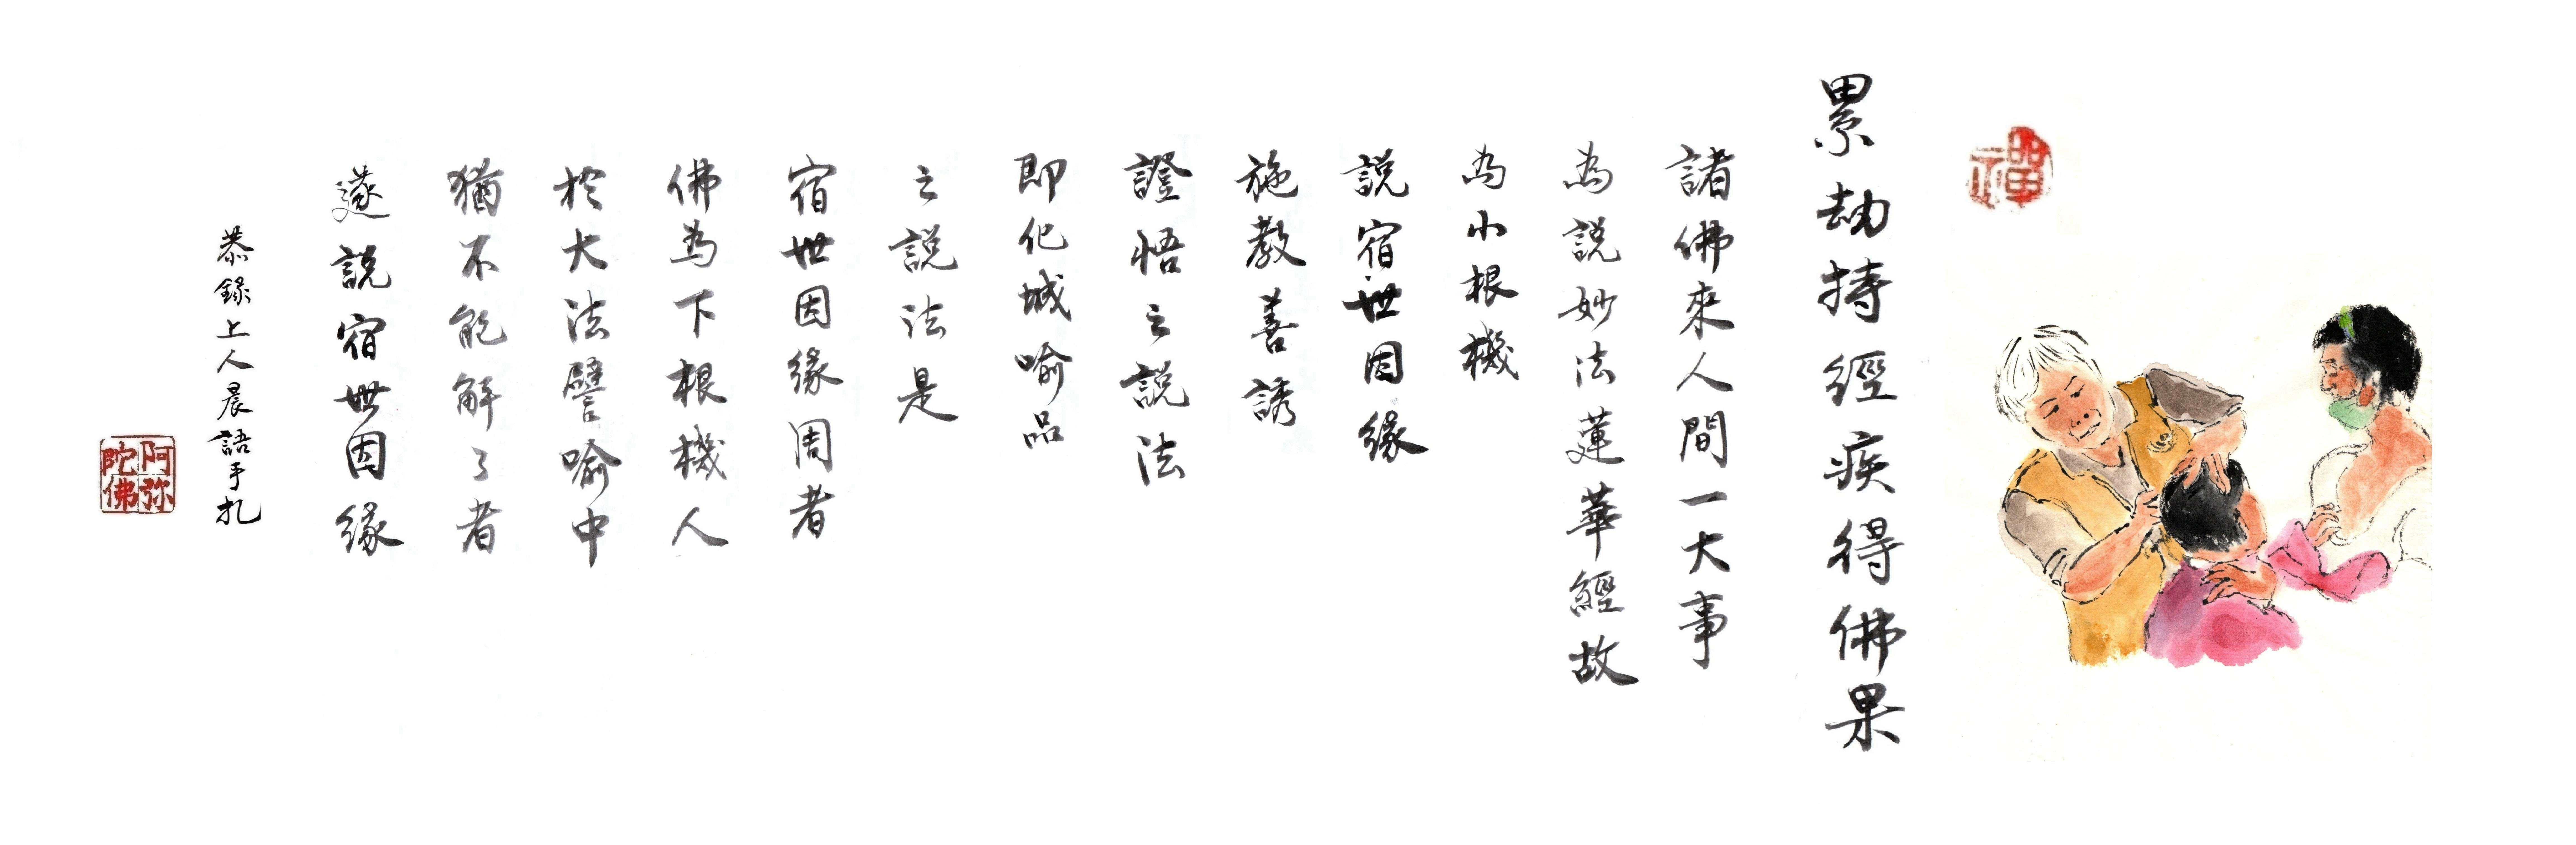 禪
累劫持經疾得佛果
諸佛來人間一大事
為說妙法蓮華經故
為小根機
說宿世因緣
施教善誘
證悟之說法
即化城喻品
之說法是
宿世因緣周者
佛為下根機人
於大法譬喻中
猶不能解了者
遂說宿世因緣
恭錄上人晨語手札
阿弥
陀佛